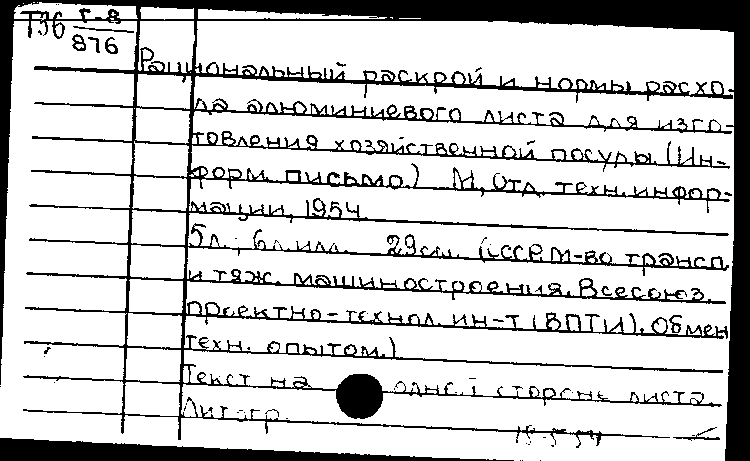 Т36 Г-8
876
Рациональный раскрой и нормы расхо-
да алюминиевого листа для изго-
товления хозяйственной посуды. (Ин-
форм. письмо.) М., Отд. техн. инфор-
мации, 1954.
5л.; 6л. илл. 29см. (СССР. М-во трансп.
и тяж. машиностроения. Всесоюз.
проектно-технол. ин-т (ВПТИ). Обмен
техн. опытом.)
Текст на одной стороне листа.
Литогр.